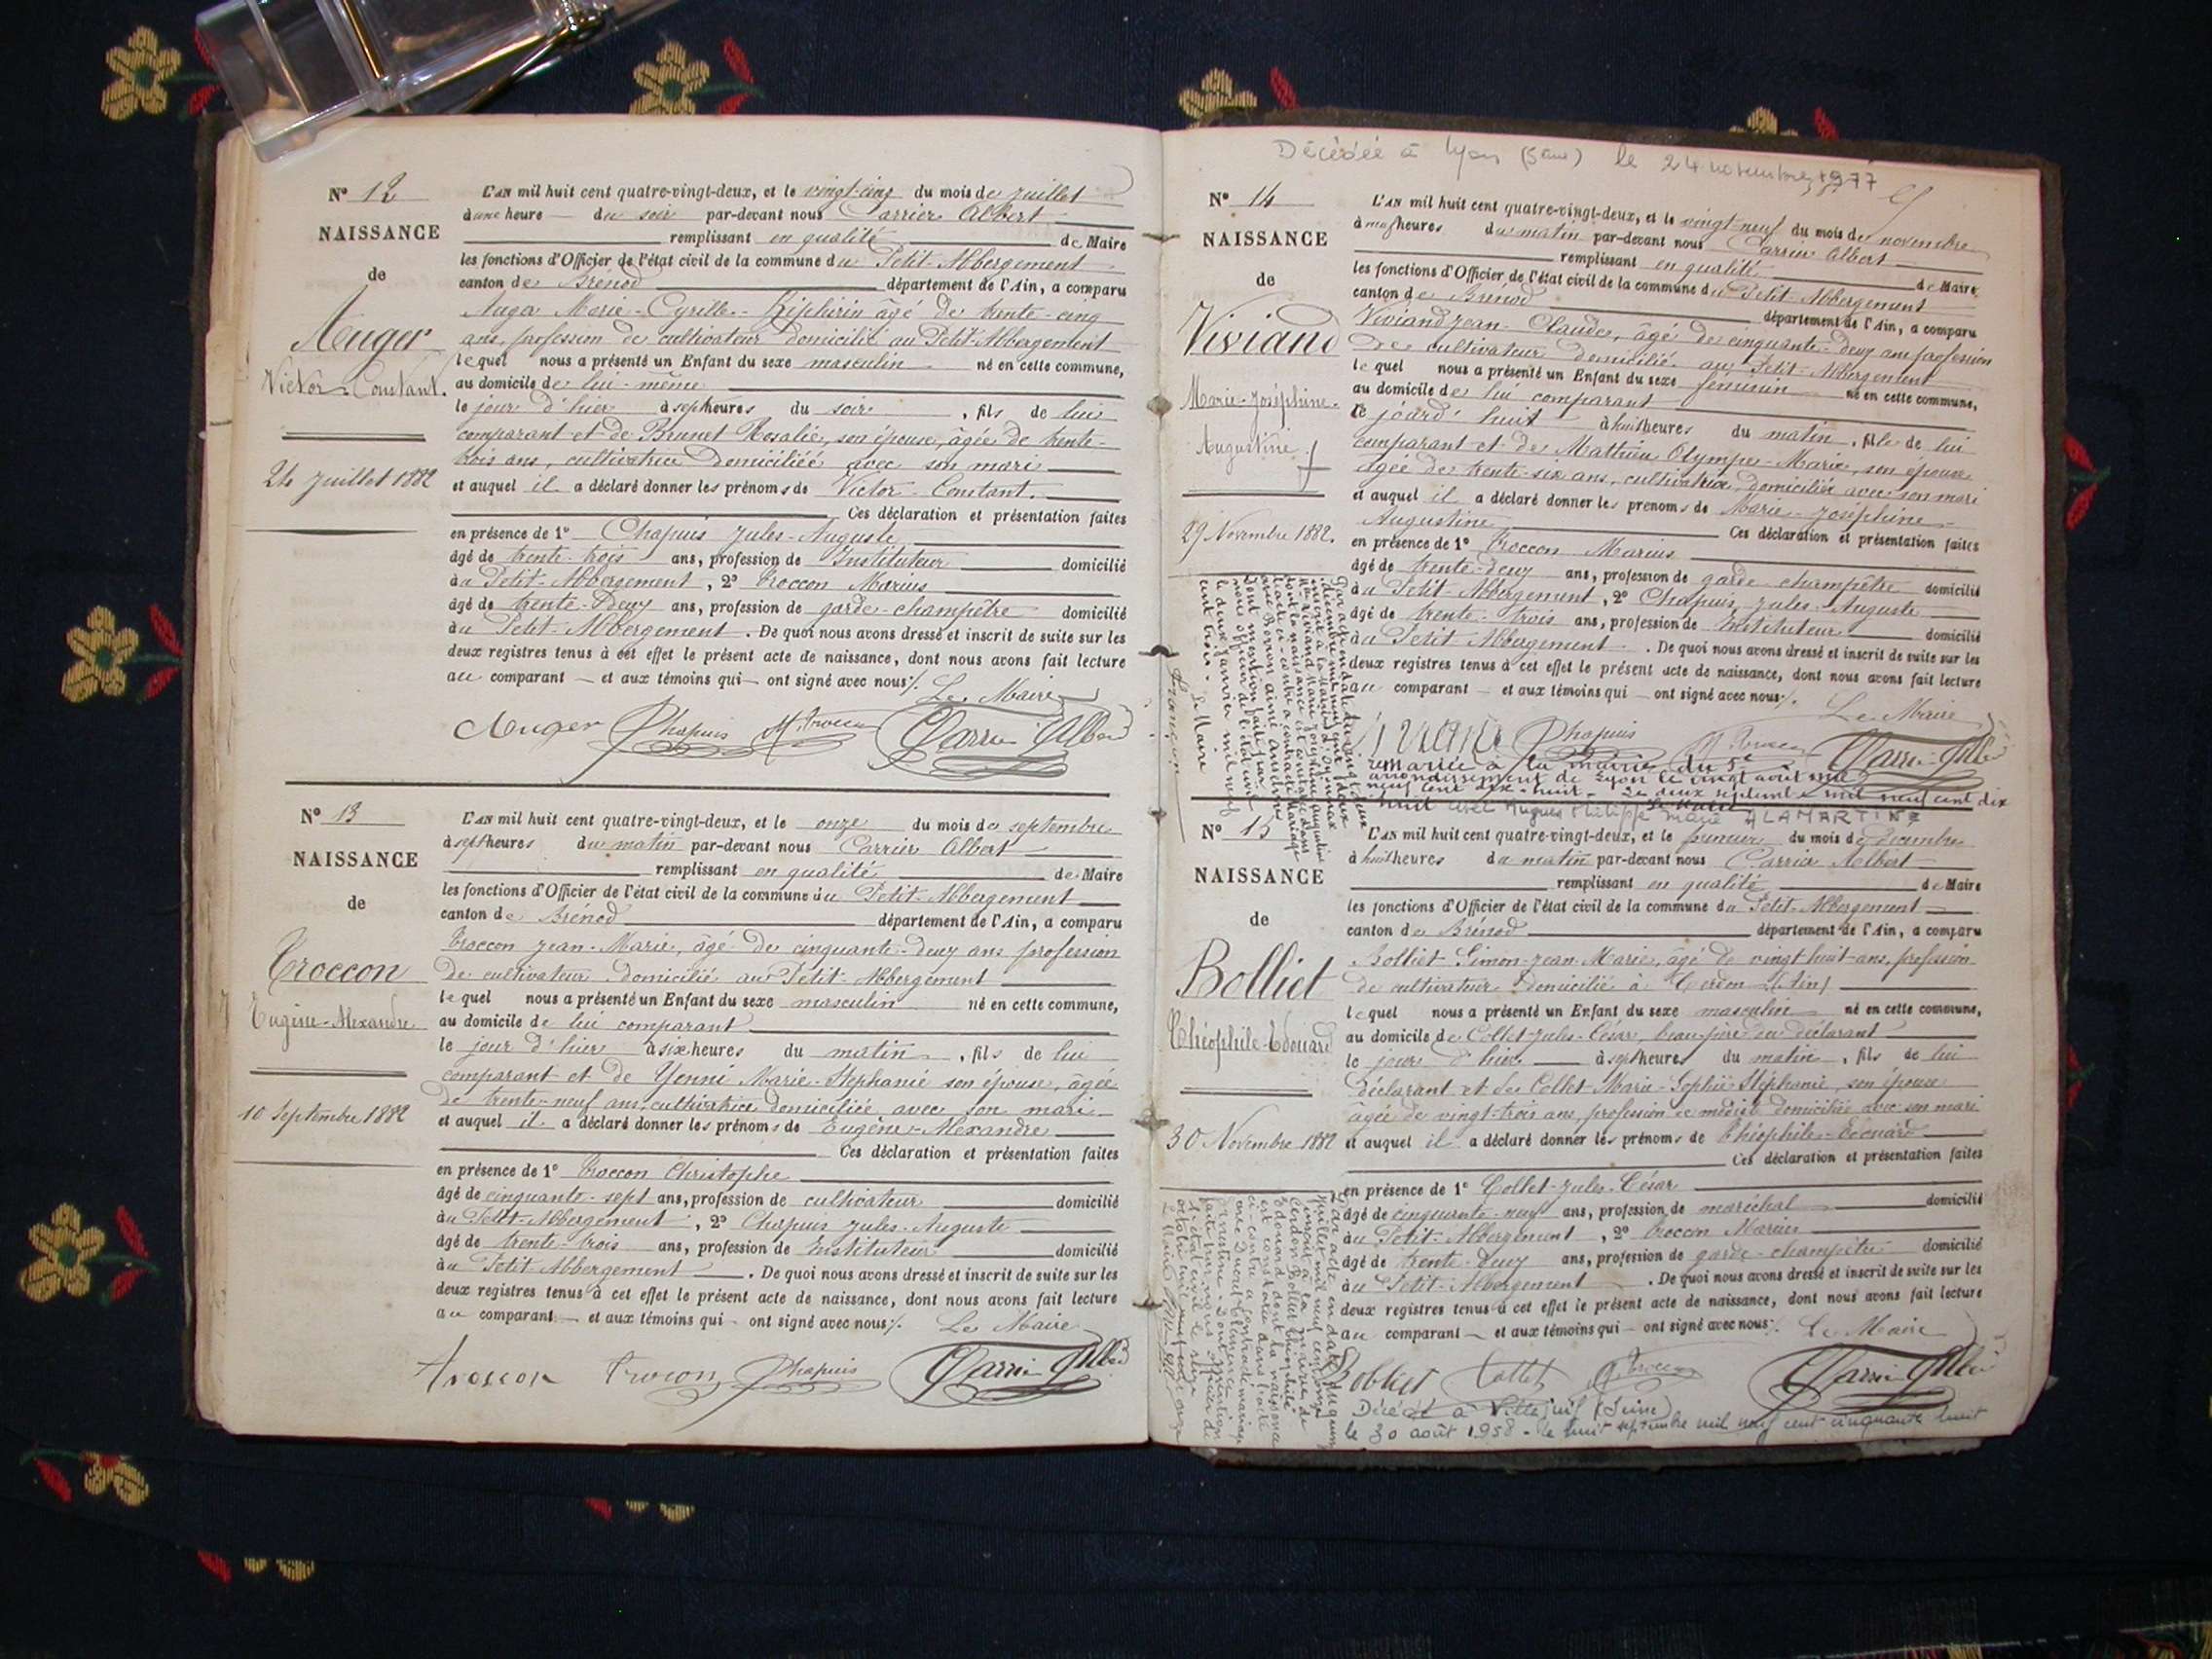 N° 12
NAISSANCE
de
Auger
Victor-Constant.
24 Juillet 1882
L'AN mil huit cent quatre-vingt-deux, et le vingt-cinq du mois de Juillet
à une heure du soir par-devant nous Carrier Albert
remplissant en qualité de Maire
les fonctions d'Officier de l'état civil de la commune du Petit-Abbergement
canton de Brénod département de l'Ain, a comparu
Auger Marie-Cyrille-Ziphirin âgé de trente-cinq
ans, profession de cultivateur domicilié au Petit-Abbergement
lequel nous a présenté un Enfant du sexe masculin né en cette commune,
au domicile de lui-même
le jour d'hier à sept heures du soir, fils de lui
comparant et de Brunet Rosalie, son épouse, âgée de trente-
trois ans, cultivatrice domiciliée avec son mari
et auquel il a déclaré donner les prénoms de Victor-Constant.
Ces déclaration et présentation faites
en présence de 1° Chapuis Jules-Auguste
âgé de trente-trois ans, profession de Instituteur domicilié
à u Petit-Abbergement, 2° Troccon Marius
âgé de trente-Deux ans, profession de garde-champêtre domicilié
à u Petit-Abbergement. De quoi nous avons dressé et inscrit de suite sur les
deux registres tenus à cet effet le présent acte de naissance, dont nous avons fait lecture
au comparant et aux témoins qui ont signé avec nous ./. Le Maire
Auger Chapuis M. Troccon Carrier Albert
N° 13
NAISSANCE
de
Troccon
Eugène-Alexandre
10 Septembre 1882
L'AN mil huit cent quatre-vingt-deux, et le onze du mois de septembre
à sept heures du matin par-devant nous Carrier Albert
remplissant en qualité de Maire
les fonctions d'Officier de l'état civil de la commune du Petit-Abbergement
canton de Brénod département de l'Ain, a comparu
Troccon Jean-Marie, âgé de cinquante-deux ans profession
de cultivateur domicilié au Petit-Abbergement
lequel nous a présenté un Enfant du sexe masculin né en cette commune,
au domicile de lui comparant
le jour d'hier à six heures du matin, fils de lui
comparant et de Yenni Marie-Stephanie son épouse, âgée
de trente-neuf ans, cultivatrice domiciliée avec son mari
et auquel il a déclaré donner les prénoms de Eugène-Alexandre
Ces déclaration et présentation faites
en présence de 1° Troccon Christophe
âgé de cinquante-sept ans, profession de cultivateur domicilié
à u Petit-Abbergement, 2° Chapuis Jules-Auguste
âgé de trente-trois ans, profession de Instituteur domicilié
à u Petit-Abbergement. De quoi nous avons dressé et inscrit de suite sur les
deux registres tenus à cet effet le présent acte de naissance, dont nous avons fait lecture
au comparant et aux témoins qui ont signé avec nous ./. Le Maire
Troccon Chapuis Carrier Albert
Décédée à Lyon (5ème) le 24 novembre 1977
N° 14
NAISSANCE
de
Viviand
Marie-Joséphine-
Augustine
29 Novembre 1882.
L'AN mil huit cent quatre-vingt-deux, et le vingt-neuf du mois de novembre
à neuf heures du matin par-devant nous Carrier Albert
remplissant en qualité de Maire
les fonctions d'Officier de l'état civil de la commune du Petit-Abbergement
canton de Brénod département de l'Ain, a comparu
Viviand Jean-Claude, âgé de cinquante-deux ans profession
de cultivateur domicilié au Petit-Abbergement
lequel nous a présenté un Enfant du sexe féminin né en cette commune,
au domicile de lui comparant
le jourd'huit à huit heures du matin, fille de lui
comparant et de Mathieu Olympe-Marie, son épouse
âgée de trente-six ans, cultivatrice, domiciliée avec son mari
et auquel il a déclaré donner les prénoms de Marie-Joséphine-
Augustine Ces déclaration et présentation faites
en présence de 1° Troccon Marius
âgé de trente-deux ans, profession de garde champêtre domicilié
à u Petit-Abbergement, 2° Chapuis Jules-Auguste
âgé de trente-trois ans, profession de Instituteur domicilié
à u Petit-Abbergement. De quoi nous avons dressé et inscrit de suite sur les
deux registres tenus à cet effet le présent acte de naissance, dont nous avons fait lecture
au comparant et aux témoins qui ont signé avec nous ./. Le Maire
Viviand Chapuis M. Troccon Carrier Albert
remariée à la mairie du 5e
arrondissement de Lyon le vingt août mil
neuf cent dix-huit - Le deux septembre mil neuf cent dix
huit avec Hugues Philippe Marie ALAMARTINE
N° 15
NAISSANCE
de
Bolliet
Théophile-Edouard
30 Novembre 1882
L'AN mil huit cent quatre-vingt-deux, et le premier du mois de Décembre
à huit heures du matin par-devant nous Carrier Albert
remplissant en qualité de Maire
les fonctions d'Officier de l'état civil de la commune du Petit-Abbergement
canton de Brénod département de l'Ain, a comparu
Bolliet Simon-Jean-Marie, âgé de vingt huit-ans, profession
de cultivateur domicilié à Cerdon (Ain)
lequel nous a présenté un Enfant du sexe masculin né en cette commune,
au domicile de Collet-Jules-César, beau-père du déclarant
le jour d'hier à sept heures du matin, fils de lui
déclarant et de Collet-Marie-Sophie Stéphanie, son épouse
âgée de vingt-trois ans, profession de domiciliée avec son mari
et auquel il a déclaré donner les prénoms de Théophile-Edouard
Ces déclaration et présentation faites
en présence de 1° Collet-Jules-César
âgé de cinquante-neuf ans, profession de maréchal domicilié
à u Petit-Abbergement, 2° Troccon Marius
âgé de trente-deux ans, profession de garde-champêtre domicilié
à u Petit-Abbergement. De quoi nous avons dressé et inscrit de suite sur les
deux registres tenus à cet effet le présent acte de naissance, dont nous avons fait lecture
au comparant et aux témoins qui ont signé avec nous ./. Le Maire
Bolliet Collet M. Troccon Carrier Albert
Décédé à Villejuif (Seine)
le 30 août 1958 - le huit septembre mil neuf cent cinquante huit